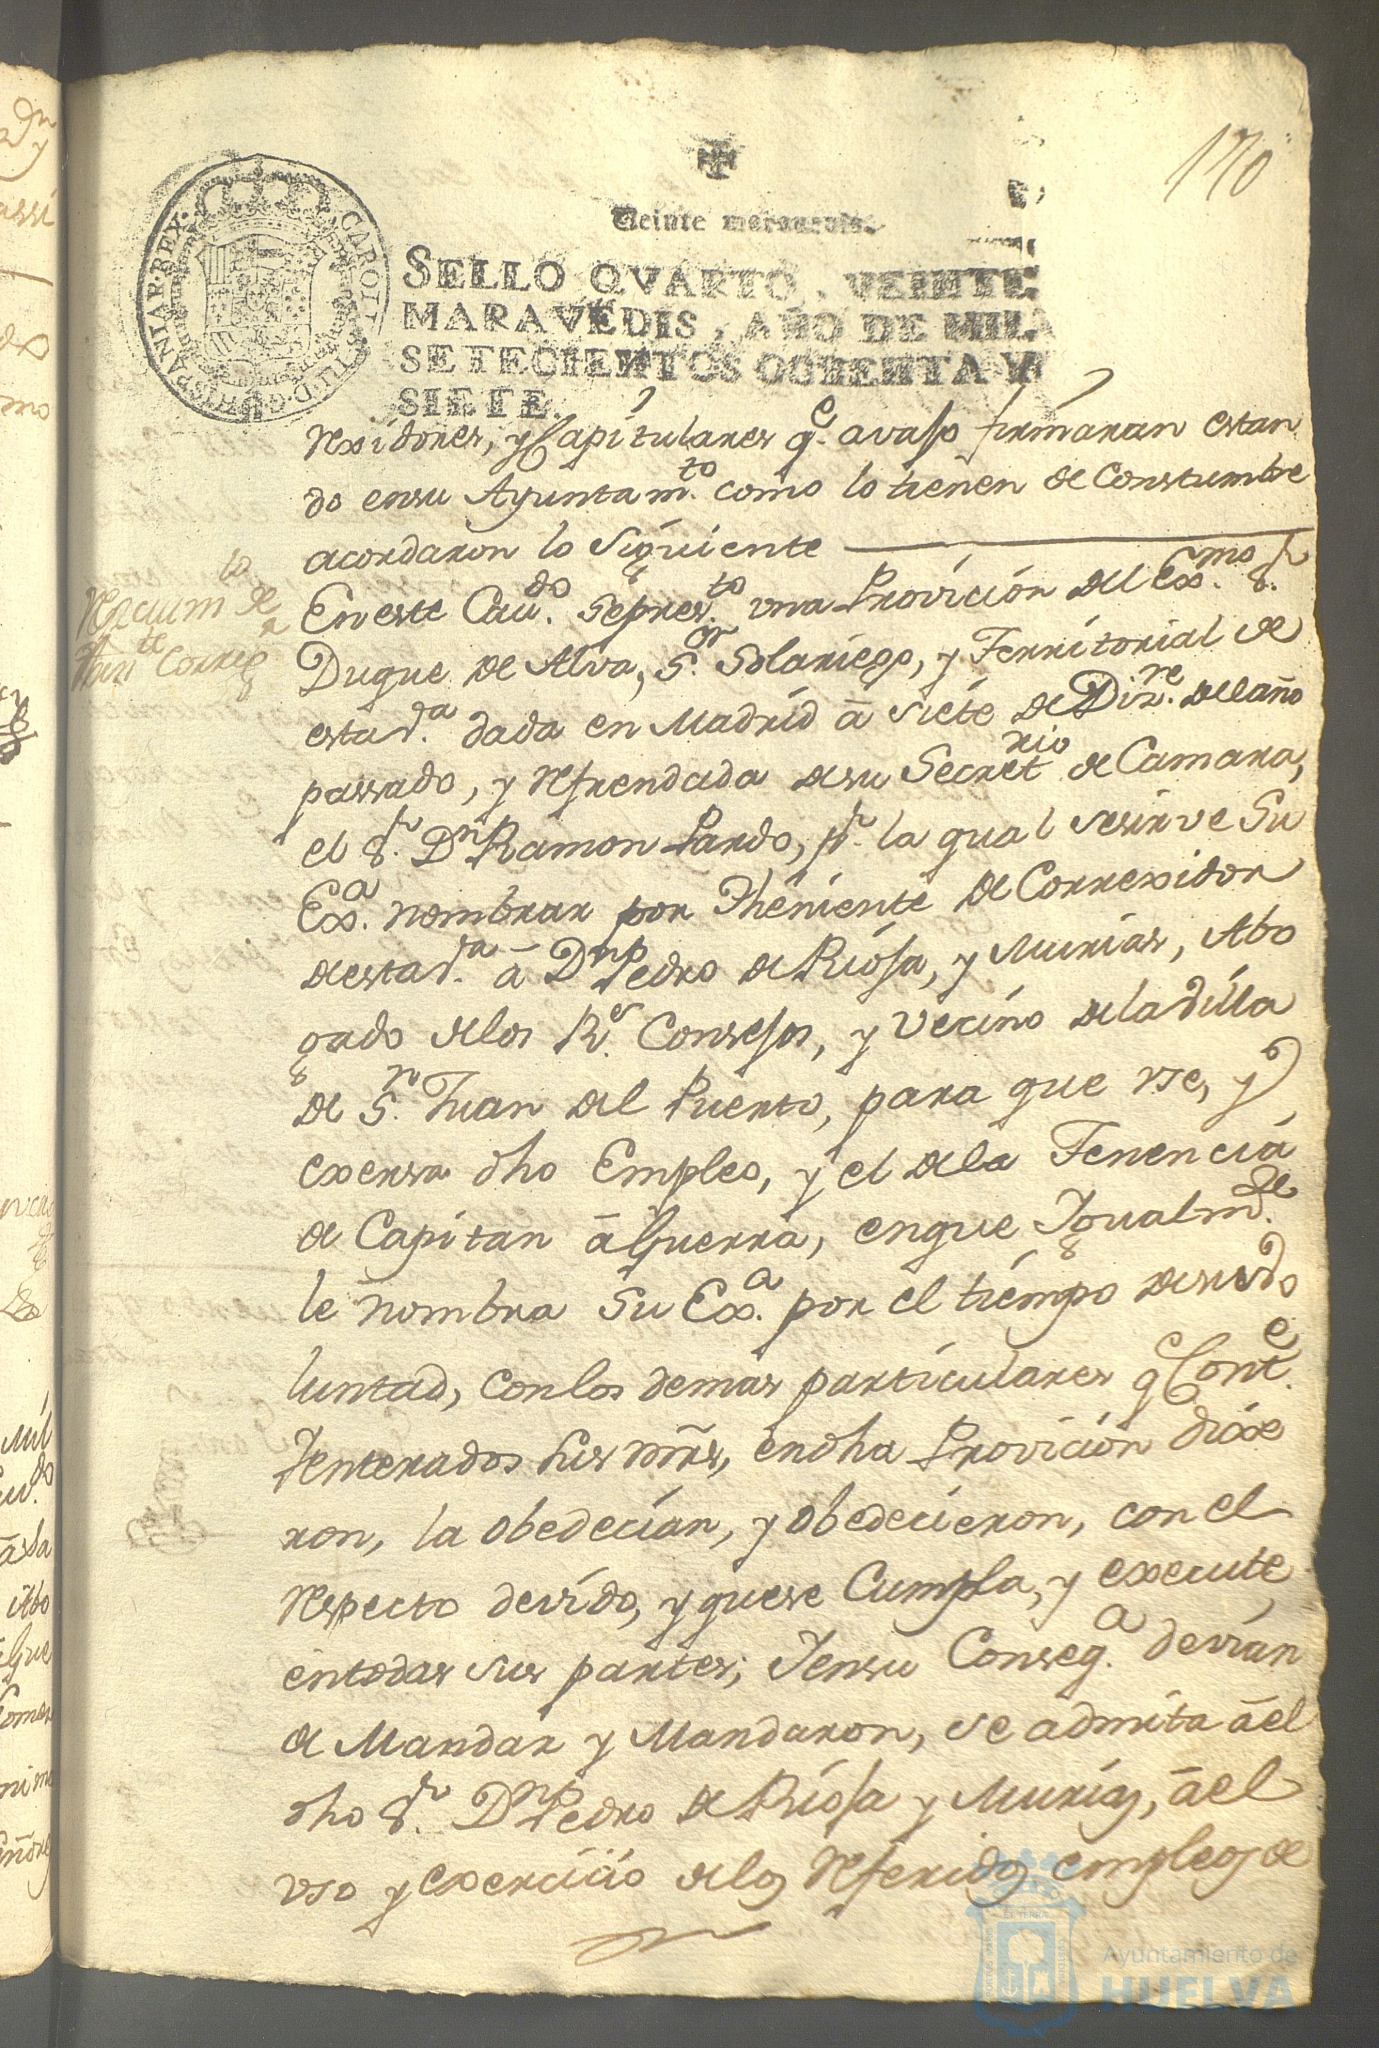 170
Veinte maravedis.
SELLO QVARTO, VEINTE
MARAVEDIS, AÑO DE MIL
SETECIENTOS OCHENTA Y
SIETE.
CAROLUS III D. G. HISPANIAR. REX
rexidores, y Capitulares q.e avaxo firmaran estan
do ensu Ayuntam.to como lo tienen de Constumbre
acordaron lo siguiente
Recivim.to de
then.te Correg.r
Eneste Cav.do sepres.to vna Provicion del Ex.mo S.r
Duque de Alva, S.or Solariego, y Territorial de
esta v.a dada en Madrid â siete de Diz.re del año
passado, y refrendada desu Secret.rio de Camara,
el S.r D.n Ramon Pardo, p.r la qual sesirve Su
Ex.a nombrar por Theniente de Correxidor
desta v.a â D.n Pedro de Riosa, y Murias, Abo
gado delos R.s Consejos, y Vecino dela Villa
de S.n Juan del Puerto, para que vse, y
exersa dho Empleo, y el dela Tenencia
de Capitan â Guerra, enque Igualm.te
le nombra Su Ex.a por el tiempo desu vo
luntad, conlos demas particulares q.e Cont.e
Ienterados sus mrs, endha Provicion dixe
ron, la obedecian, y obedecieron, con el
respecto devido, y quese Cumpla, y execute
entodas sus partes; Iensu Conseq.a devian
de Mandar y Mandaron, se admita âel
dho S.r D.n Pedro de Riosa y Murias, âel
vso y exercicio delos referidos empleos de
Ayuntamiento de
HUELVA